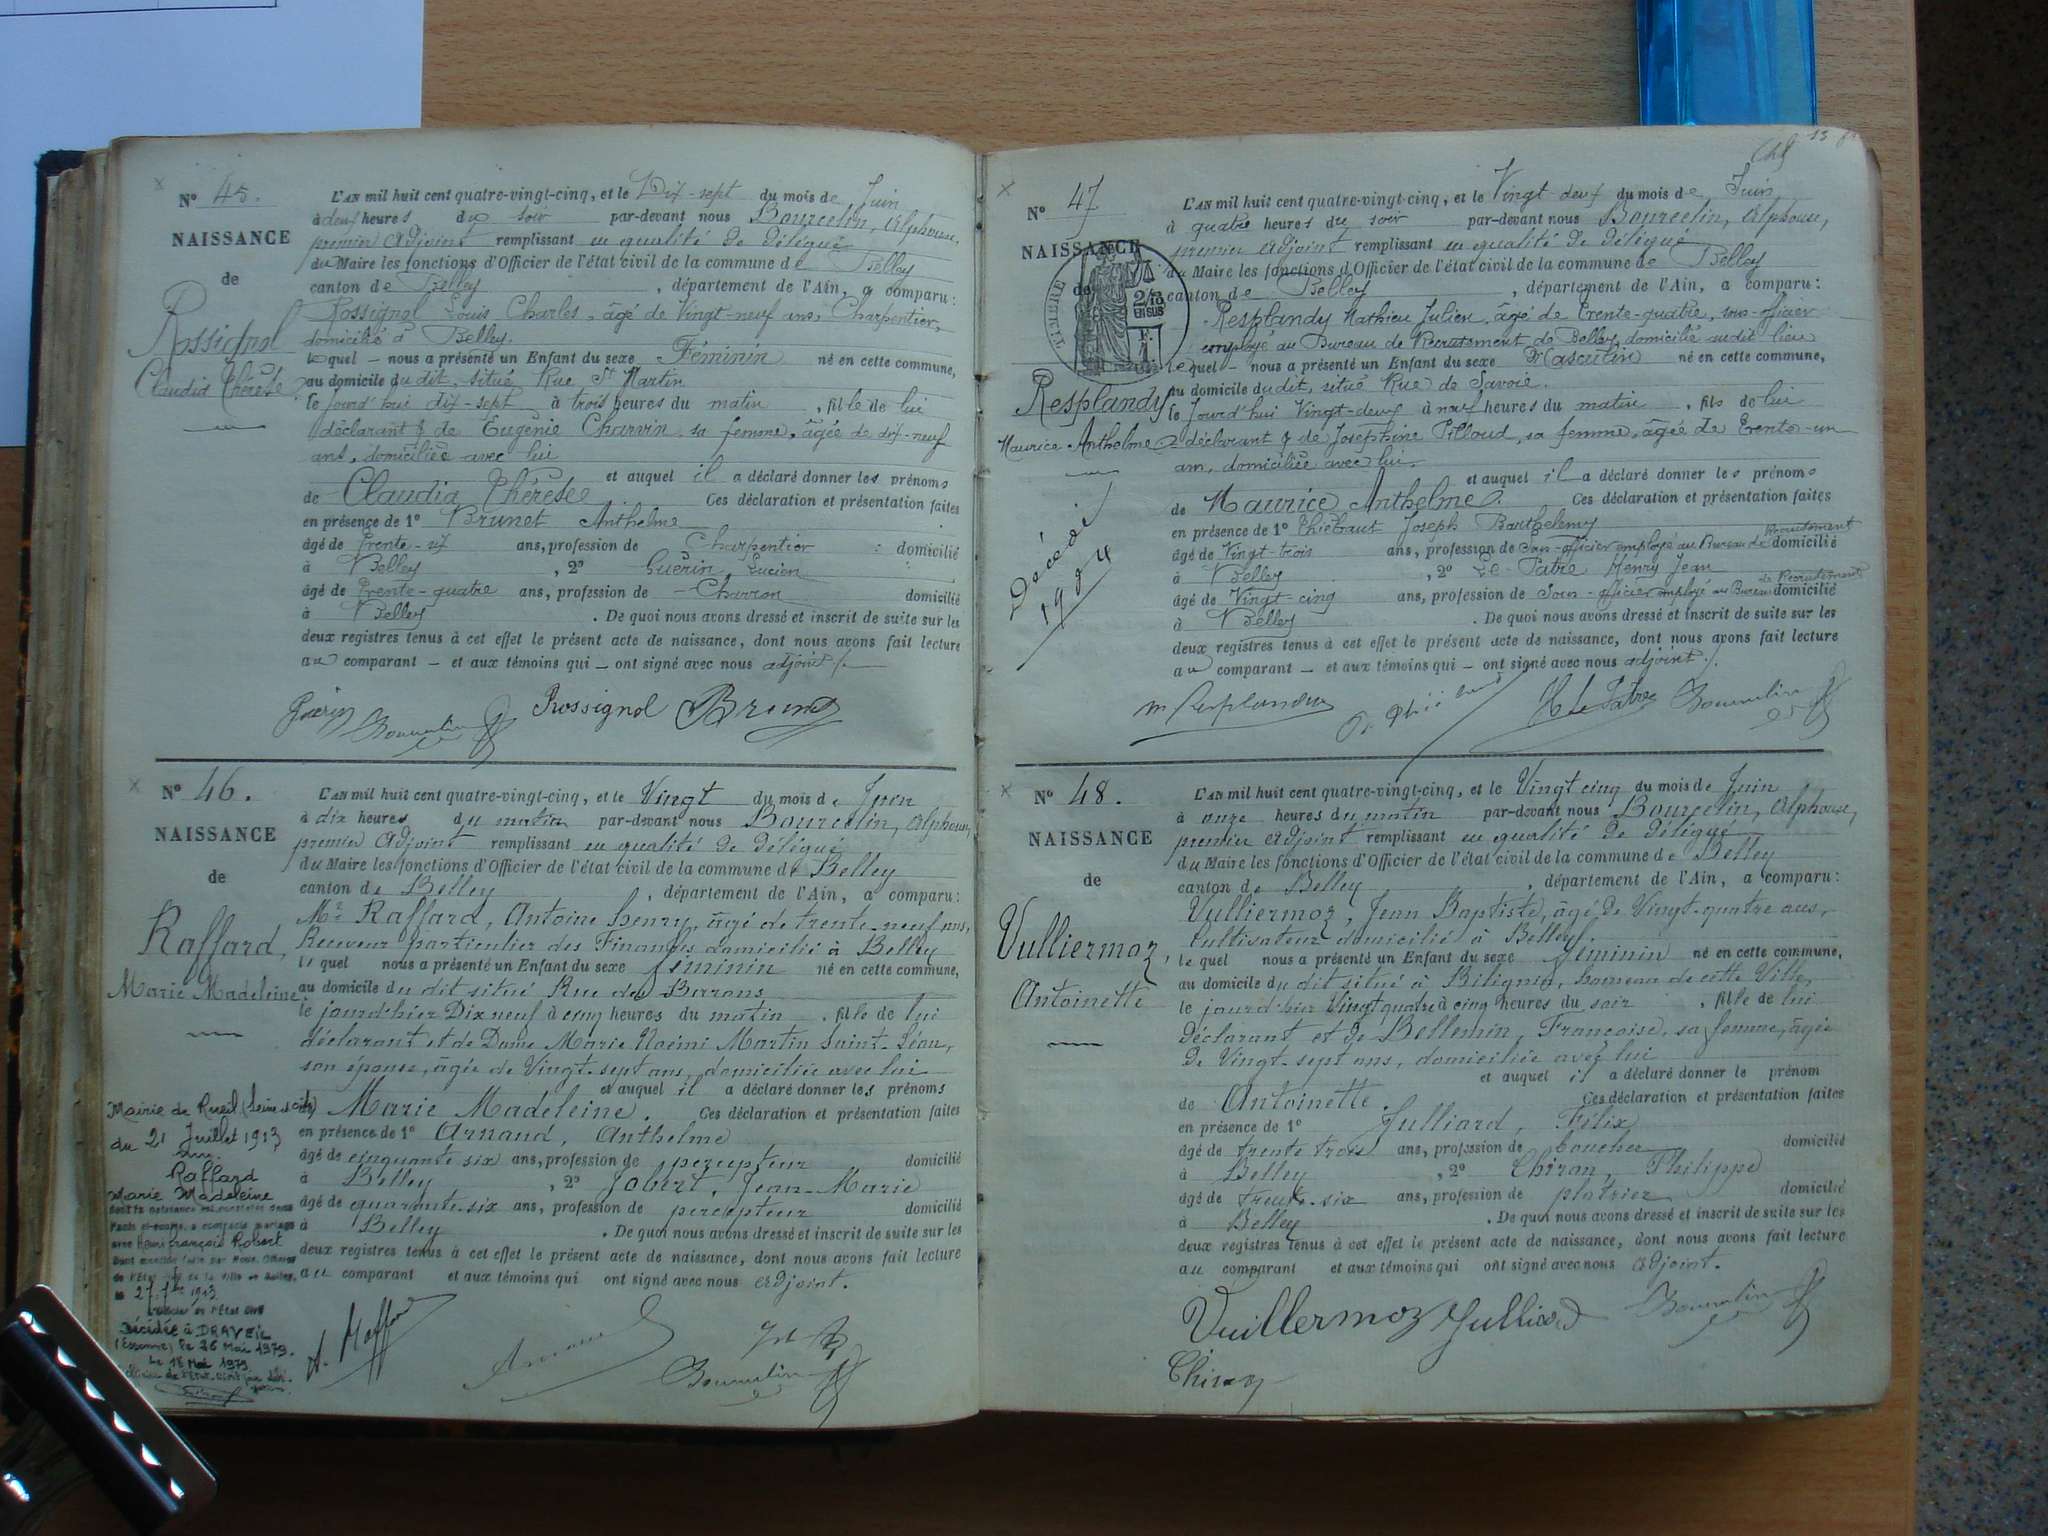 N° 45.
NAISSANCE
de
Rossignol
Claudia Thérèse
L'AN mil huit cent quatre-vingt-cinq, et le Dix-sept du mois de Juin
à deux heures du soir par-devant nous Bourcelin, Alphonse,
premier Adjoint remplissant en qualité de délégué
du Maire les fonctions d'Officier de l'état civil de la commune de Belley
canton de Belley, département de l'Ain, a comparu:
Rossignol Louis Charles, âgé de Vingt-neuf ans, Charpentier,
domicilié à Belley.
lequel – nous a présenté un Enfant du sexe Féminin né en cette commune,
au domicile dudit, situé Rue St Martin
le jourd'hui dix-sept à trois heures du matin, fille de lui
déclarant & de Eugénie Charvin, sa femme, âgée de dix-neuf
ans, domiciliée avec lui
et auquel il a déclaré donner les prénoms
de Claudia Thérèse Ces déclaration et présentation faites
en présence de 1° Brunet Anthelme
âgé de trente-six ans, profession de Charpentier domicilié
à Belley, 2° Guérin Lucien
âgé de trente-quatre ans, profession de Charron domicilié
à Belley. De quoi nous avons dressé et inscrit de suite sur les
deux registres tenus à cet effet le présent acte de naissance, dont nous avons fait lecture
au comparant – et aux témoins qui – ont signé avec nous adjoint ./.
Guérin Rossignol Brunet
N° 46.
NAISSANCE
de
Raffard,
Marie Madeleine
L'AN mil huit cent quatre-vingt-cinq, et le Vingt du mois de Juin
à dix heures du matin par-devant nous Bourcelin, Alphonse,
premier Adjoint remplissant en qualité de délégué
du Maire les fonctions d'Officier de l'état civil de la commune de Belley
canton de Belley, département de l'Ain, a comparu:
Mr Raffard, Antoine Henry, âgé de trente-neuf ans,
Receveur particulier des Finances domicilié à Belley
lequel nous a présenté un Enfant du sexe féminin né en cette commune,
au domicile du dit situé Rue des Barrons
le jourd'hier Dix neuf à cinq heures du matin, fille de lui
déclarant et de Dame Marie Noémi Martin Saint-Léon,
son épouse, âgée de Vingt-sept ans, domiciliée avec lui
et auquel il a déclaré donner les prénoms
Marie Madeleine. Ces déclaration et présentation faites
en présence de 1° Arnaud, Anthelme
âgé de cinquante six ans, profession de percepteur domicilié
à Belley, 2° Jobert, Jean-Marie
âgé de quarante-six ans, profession de percepteur domicilié
à Belley. De quoi nous avons dressé et inscrit de suite sur les
deux registres tenus à cet effet le présent acte de naissance, dont nous avons fait lecture
au comparant et aux témoins qui ont signé avec nous adjoint.
Mairie de Rueil (Seine et Oise)
du 21 Juillet 1913
Raffard
Marie Madeleine
dont la naissance est constatée dans
l'acte ci-contre, a contracté mariage
avec Henri François Robert
de l'Etat civil de la Ville de Belley,
le 27 7bre 1913
L'officier de l'Etat civil
Décédée à DRAVEIL
(Essonne) le 26 Mai 1979.
Le 18 Mai 1979
A. Raffard
N° 47
NAISSANCE
de
TIMBRE
2/10
EN SUS
F.
1.
Resplandy
Maurice Anthelme
Décédé
1904
L'AN mil huit cent quatre-vingt-cinq, et le Vingt deux du mois de Juin
à quatre heures du soir par-devant nous Bourcelin, Alphonse,
premier Adjoint remplissant en qualité de délégué
du Maire les fonctions d'Officier de l'état civil de la commune de Belley
canton de Belley, département de l'Ain, a comparu:
Resplandy Mathieu Julien, âgé de trente-quatre, sous-officier
employé au Bureau de Recrutement de Belley, domicilié audit lieu
lequel – nous a présenté un Enfant du sexe Masculin né en cette commune,
au domicile dudit, situé Rue de Savoie.
le jourd'hui Vingt-deux à neuf heures du matin, fils de lui
déclarant & de Joséphine Pilloud, sa femme, âgée de trente-un
ans, domiciliée avec lui.
et auquel il a déclaré donner les prénoms
de Maurice Anthelme. Ces déclaration et présentation faites
en présence de 1° Thiébaut Joseph Barthélemy
âgé de Vingt-trois ans, profession de Sous-officier employé au Bureau de Recrutement domicilié
à Belley, 2° Le Patre Henry Jean
âgé de Vingt-cinq ans, profession de Sous-officier employé au Bureau de Recrutement domicilié
à Belley. De quoi nous avons dressé et inscrit de suite sur les
deux registres tenus à cet effet le présent acte de naissance, dont nous avons fait lecture
au comparant – et aux témoins qui – ont signé avec nous adjoint ./.
m Resplandy
N° 48.
NAISSANCE
de
Vulliermoz,
Antoinette
L'AN mil huit cent quatre-vingt-cinq, et le Vingt cinq du mois de Juin
à onze heures du matin par-devant nous Bourcelin, Alphonse,
premier Adjoint remplissant en qualité de délégué
du Maire les fonctions d'Officier de l'état civil de la commune de Belley
canton de Belley, département de l'Ain, a comparu:
Vulliermoz, Jean Baptiste, âgé de Vingt-quatre ans,
Cultivateur domicilié à Belley.
lequel nous a présenté un Enfant du sexe féminin né en cette commune,
au domicile du dit situé à Billignin, hameau de cette Ville,
le jourd'hier Vingt quatre à cinq heures du soir, fille de lui
déclarant et de Bellemin, Françoise, sa femme, âgée
de Vingt-sept ans, domiciliée avec lui
et auquel il a déclaré donner le prénom
de Antoinette. Ces déclaration et présentation faites
en présence de 1° Julliard, Félix
âgé de trente trois ans, profession de boucher domicilié
à Belley, 2° Chiron, Philippe
âgé de trente-six ans, profession de platrier domicilié
à Belley. De quoi nous avons dressé et inscrit de suite sur les
deux registres tenus à cet effet le présent acte de naissance, dont nous avons fait lecture
au comparant et aux témoins qui ont signé avec nous adjoint.
Vuillermoz Julliard
Chiron